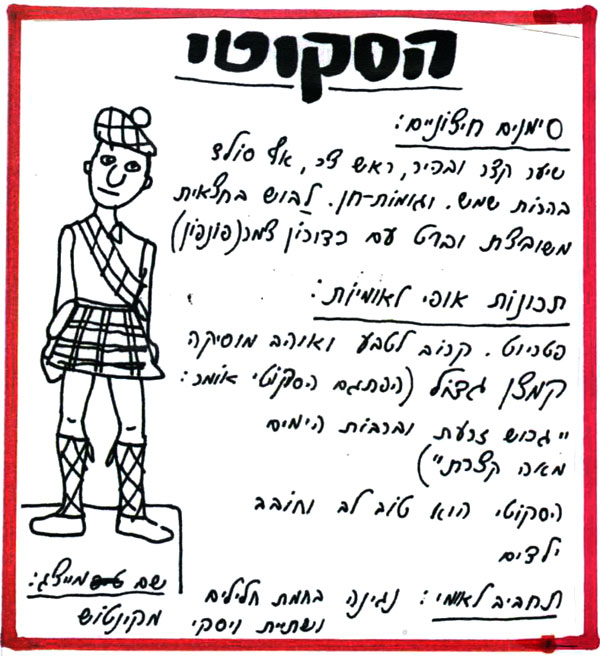 הסקוטי
סימנים חיצוניים:
שיער קצר ובהיר, ראש צר, אף סולד
בהרות שמש. וגומות-חן. לבוש בחצאית
משובצת וברט עם כדורון צמר (פונפון)
תכונות אופי לאומיות:
פטריוט. קרוב לטבע ואוהב מוסיקה
קמצן גדול (הפתגם הסקוטי אומר:
"גכוש זרעת וברבות הימים
מאה קצרת")
הסקוטי הוא טוב לב וחובב
ילדים
תחביב לאומי: נגינה בחמת חלילים
ושתיית ויסקי
שם מייצג:
מקינטוש